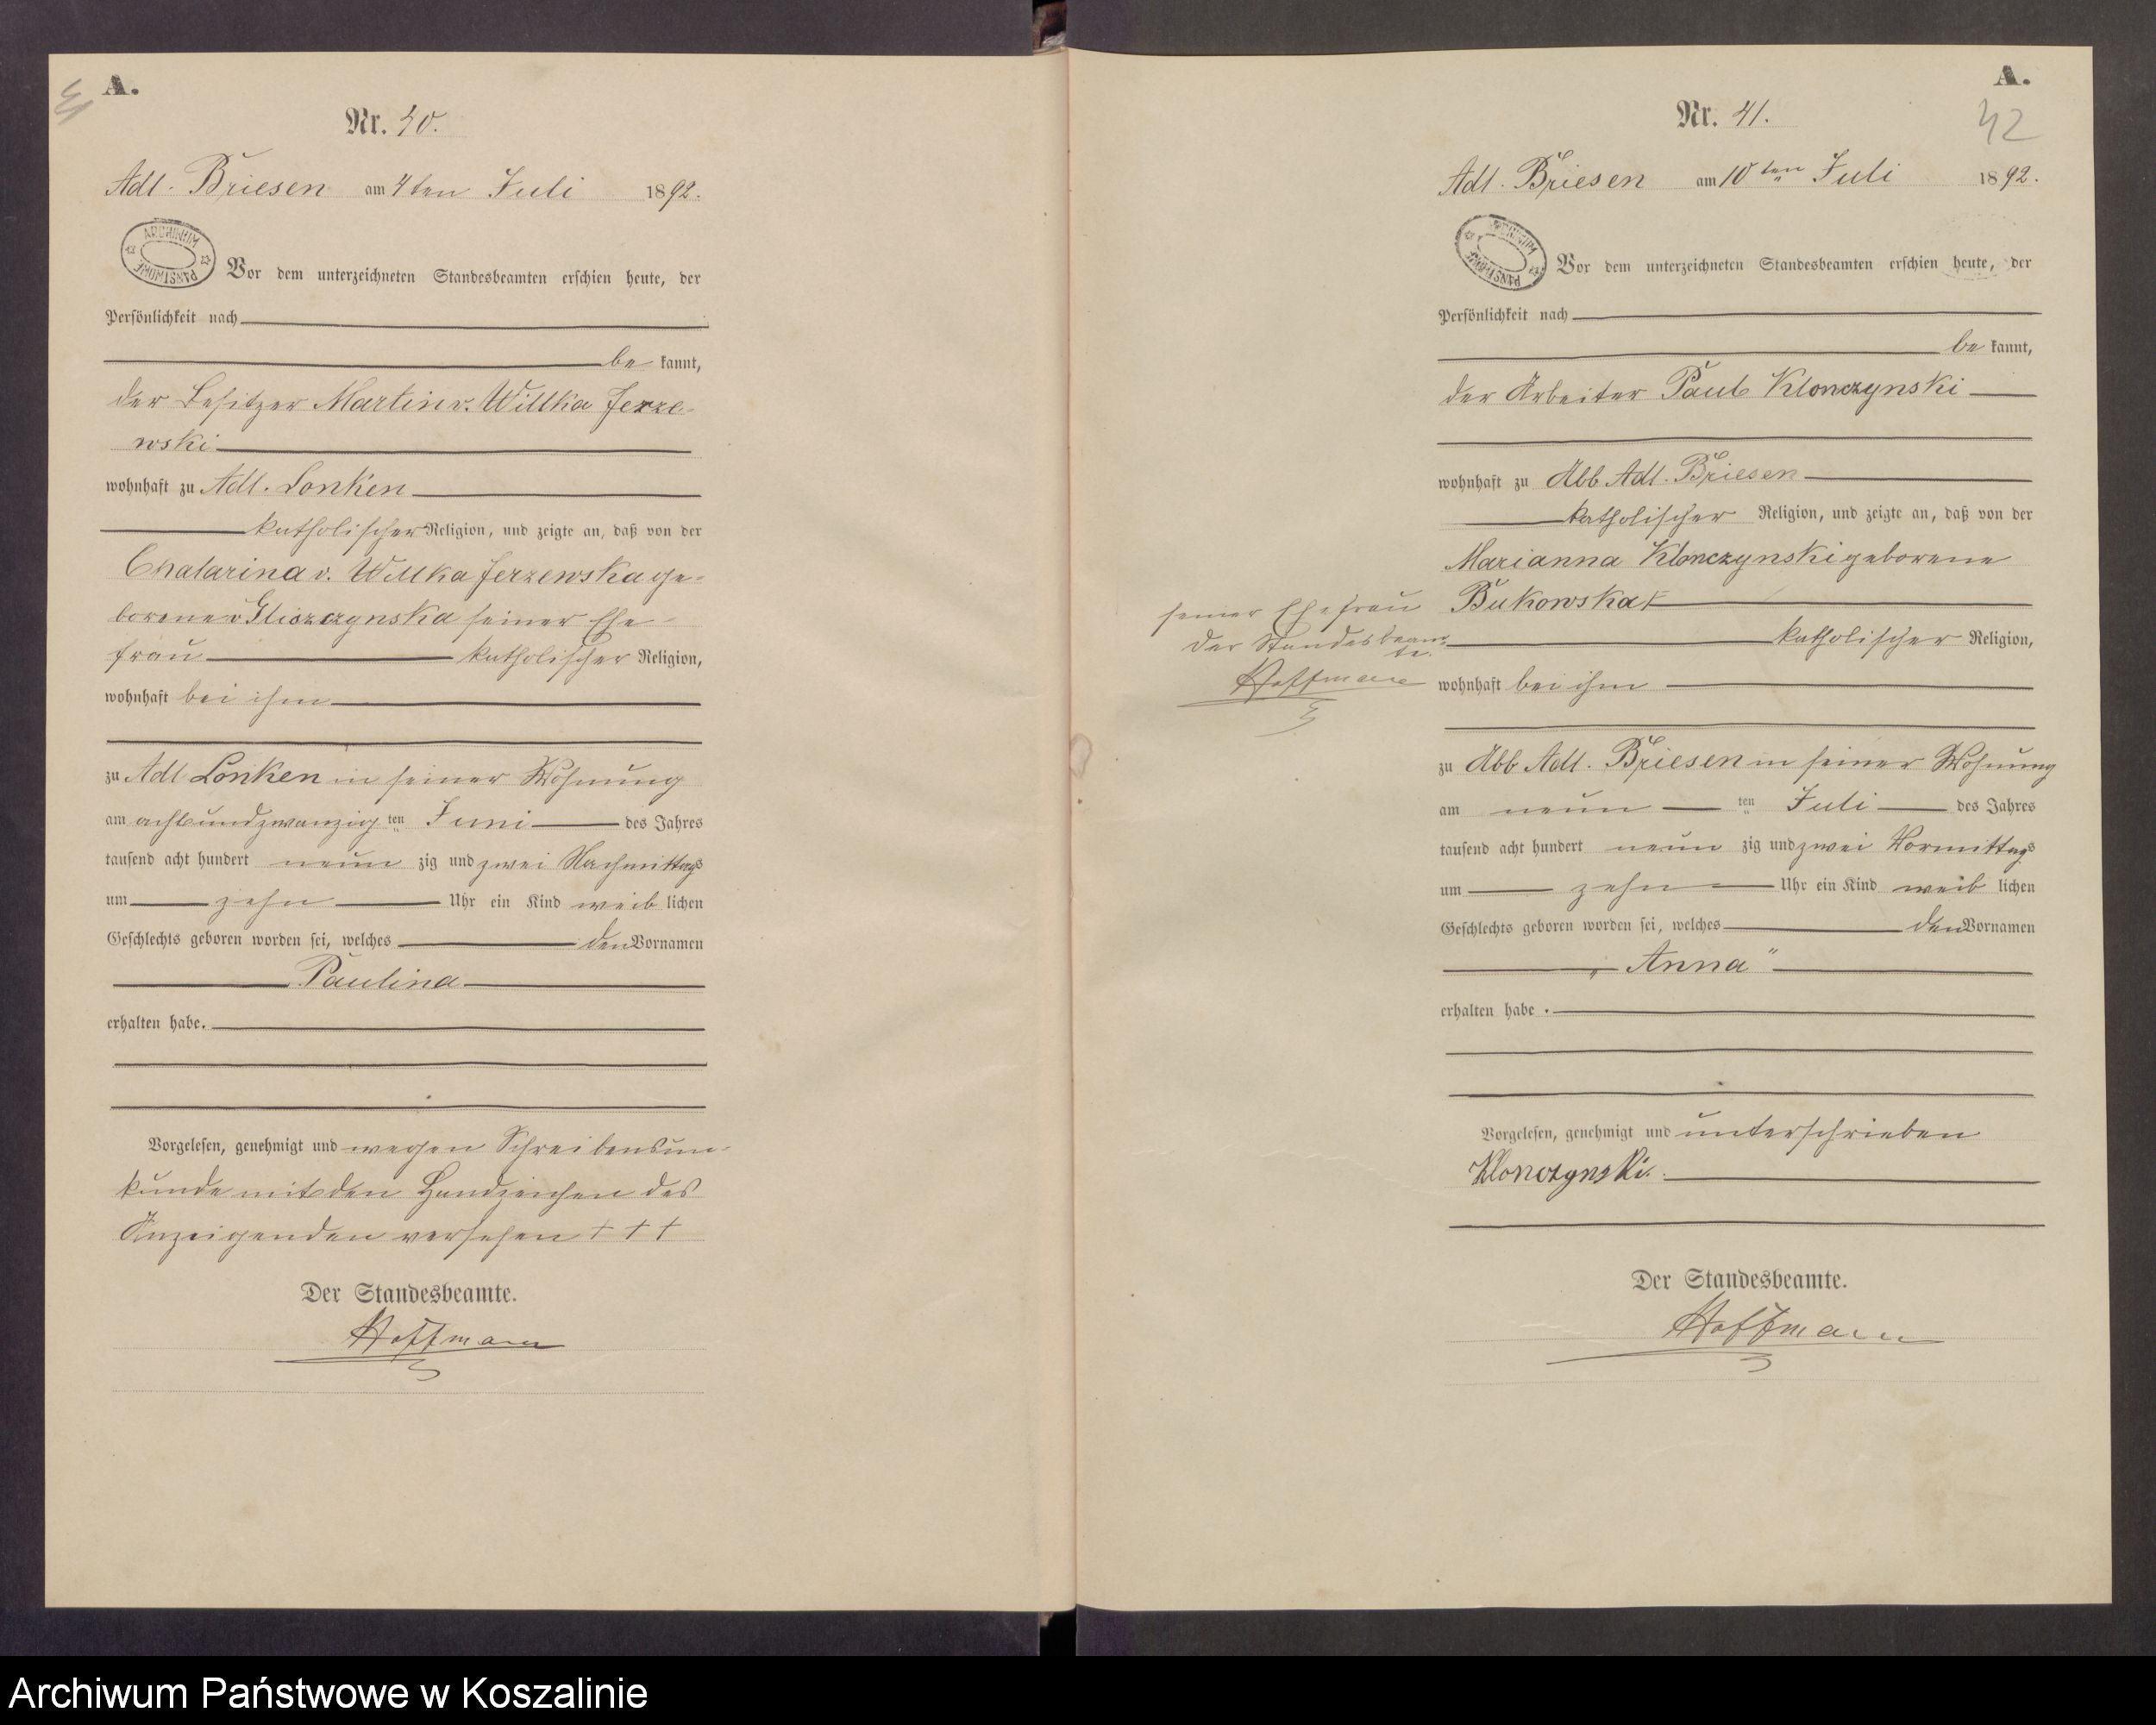 A.
Nr. 40.
Adl. Briesen am 4ten Juli 1892.
ARCHIWUM PAŃSTWOWE
Vor dem unterzeichneten Standesbeamten erschien heute, der
Persönlichkeit nach
be kannt,
der Besitzer Martin v. Willka Jerze-
wski
wohnhaft zu Adl. Lonken
katholischer Religion, und zeigte an, daß von der
Chatarina v. Willka Jerzewska ge-
borene v Gliszczynska seiner Ehe-
frau katholischer Religion,
wohnhaft bei ihm
zu Adl Lonken in seiner Wohnung
am achtundzwanzig ten Juni des Jahres
tausend acht hundert neun zig und zwei Nachmittags
um zehn Uhr ein Kind weib lichen
Geschlechts geboren worden sei, welches den Vornamen
Paulina
erhalten habe.
Vorgelesen, genehmigt und wegen Schreibensun-
kunde mit den Handzeichen des
Anzeigenden versehen + + +
Der Standesbeamte.
Hoffmann
A.
42
Nr. 41.
Adl. Briesen am 10ten Juli 1892.
ARCHIWUM PAŃSTWOWE
Vor dem unterzeichneten Standesbeamten erschien heute, der
Persönlichkeit nach
be kannt,
der Arbeiter Paul Klonczynski
wohnhaft zu Abb Adl. Briesen
katholischer Religion, und zeigte an, daß von der
Marianna Klonczynski geborene
Bukowska
seiner Ehefrau
der Standesbeam-
te.
Hoffmann
katholischer Religion,
wohnhaft bei ihm
zu Abb Adl. Briesen in seiner Wohnung
am neun ten Juli des Jahres
tausend acht hundert neun zig und zwei Vormittags
um zehn Uhr ein Kind weib lichen
Geschlechts geboren worden sei, welches den Vornamen
„Anna"
erhalten habe.
Vorgelesen, genehmigt und unterschrieben
Klonczynski.
Der Standesbeamte.
Hoffmann
Archiwum Państwowe w Koszalinie